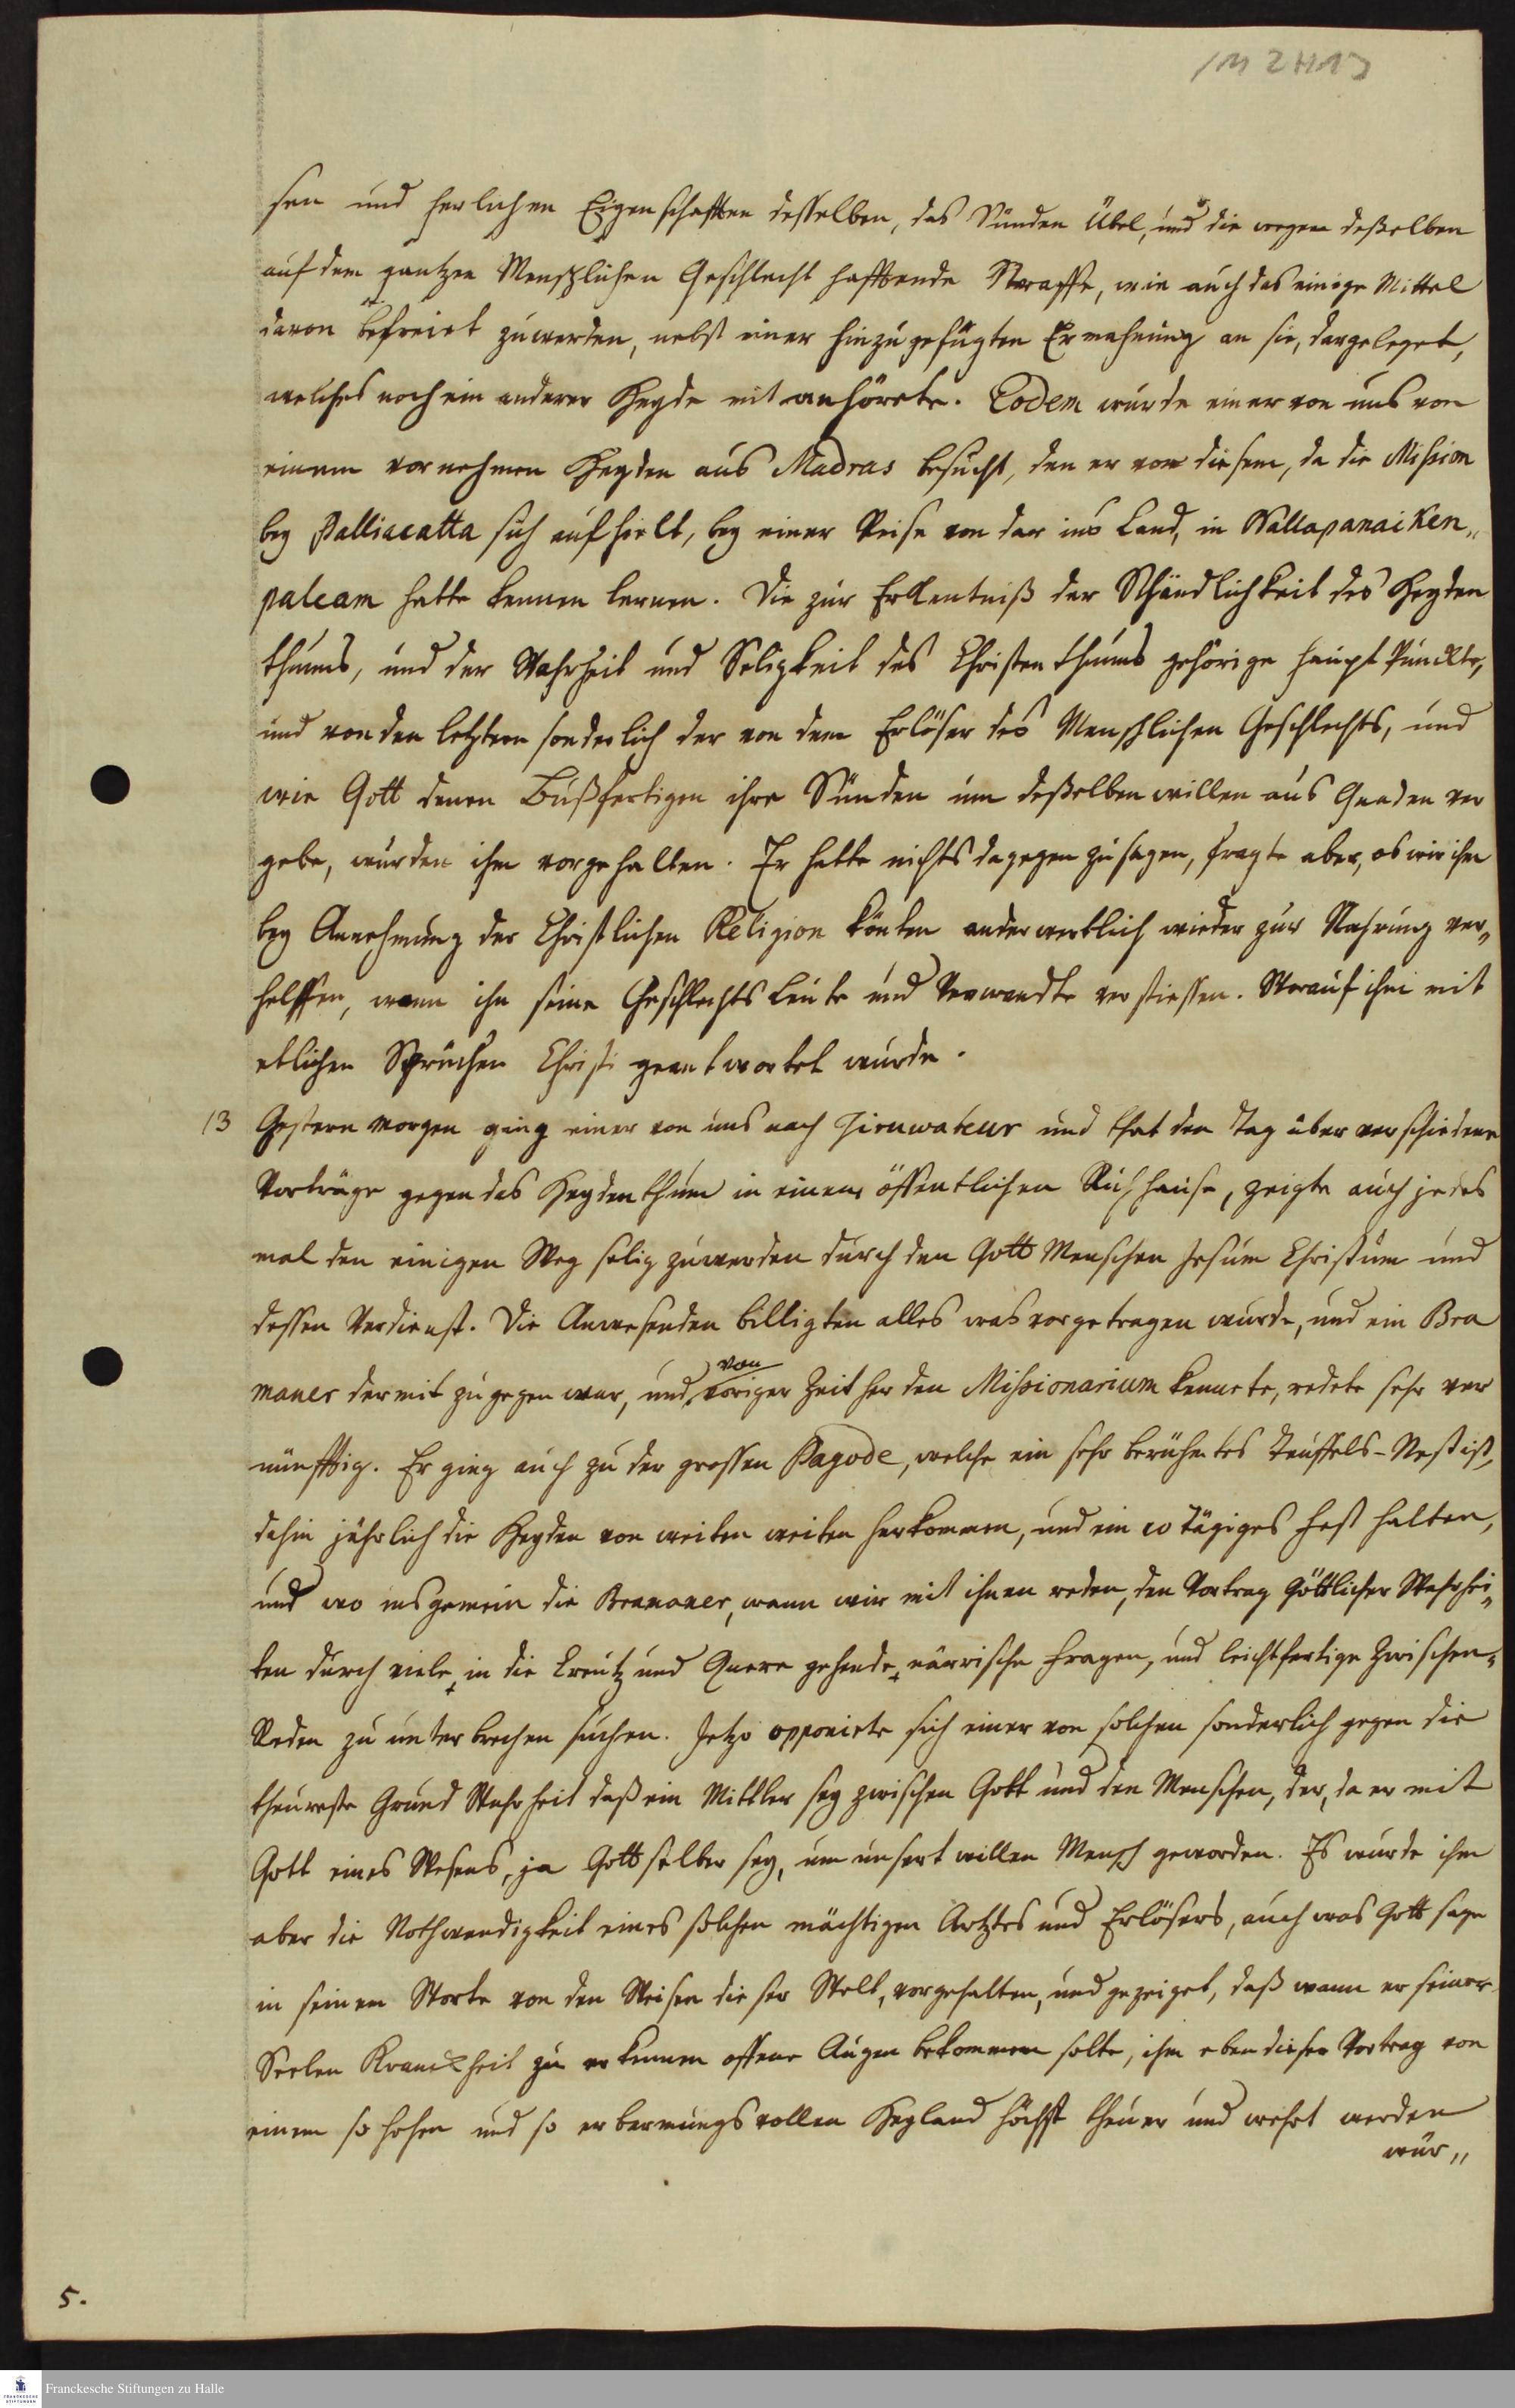 1M 2H13
sen und herlichen Eigenschafften desselben, das Sünden Übel, und die wegen deßelben
auf dem gantzen Menschlichen Geschlecht hafftende Straffe, wie auch das einige Mittel
davon befreiet zu werden, nebst einer hinzugefügten Ermahnung an sie, dargeleget,
welches noch ein anderer Heyde mit anhörete. Eodem wurde einer von uns von
einem vornehmen Heyden aus Madras besucht, den er vor diesem, da die Mißion
bey Palliacatta sich aufhielt, bey einer Reise von dar ins Land, in Nallapanaiken„
paleam hatte kennen lernen. Die zur Erkentniß der Schändlichkeit des Heyden
thums, und der Wahrheit und Seligkeit des Christenthums gehörige Haupt Punckte,
und von den letztern sonderlich der von dem Erlöser des Menschlichen Geschlechts, und
wie Gott denen Bußfertigen ihre Sünden um deßelben willen aus Gnaden ver
gebe, wurden ihm vorgehalten. Er hatte nichts dagegen zu sagen, fragte aber, ob wir ihm
bey Annehmung der Christlichen Religion könten anderwertlich wieder zur Nahrung ver„
helffen, wenn ihn seine Geschlechts Leute und Verwandte verstiessen. Worauf ihm mit
etlichen Sprüchen Christi geantwortet wurde.
13 Gestern Morgen ging einer von uns nach Tiruwateur und that den Tag über verschiedene
Vorträge gegen das Heydenthum in einem öffentlichen Ruhhause, zeigte auch jedes
mal den einigen Weg selig zu werden durch den Gott Menschen Jesum Christum und
dessen Verdienst. Die Anwesenden billigten alles was vorgetragen wurde, und ein Bra
von
maner der mit zugegen war, und voriger Zeit her den Mißionarium kennete, redete sehr ver
nünfftig. Er ging auch zu der grossen Pagode, welche ein sehr berühmtes Teuffels-Nest ist,
dahin jährlich die Heyden von weiten weiten herkommen, und ein 10 tägiges Fest halten,
und wo insgemein die Bramaner, wann wir mit ihnen reden, den Vortrag Göttlicher Wahrhei„
ten durch viele, in die Creutz und Quere gehende, närrische Fragen, und leichtfertige Zwischen-
Reden zu unterbrechen suchen. Jetzo opponirte sich einer von solchen sonderlich gegen die
theureste Grund Wahrheit daß ein Mittler sey zwischen Gott und den Menschen, der, da er mit
Gott eines Wesens, ja Gott selber sey, um unsert willen Mensch geworden. Es wurde ihm
aber die Nothwendigkeit eines solchen mächtigen Artztes und Erlösers, auch was Gott sage
in seinem Worte von den Weisen dieser Welt, vorgehalten, und gezeiget, daß wann er seiner
Seelen Kranckheit zu erkennen offene Augen bekommen solte, ihm eben dieser Vortrag von
einem so hohen und so erbarmungsvollen Heyland höchst theuer und wehrt werden
wür„
5.
FRANCKESCHE STIFTUNGEN
Franckesche Stiftungen zu Halle